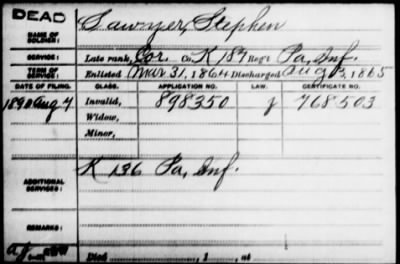 DEAD
NAME OF SOLDIER: Sawyer, Stephen
SERVICE: Late rank, Cor. Co. K 187 Reg't Pa, Inf.
TERM OF SERVICE: Enlisted Mar 31, 1864 Discharged Aug 3, 1865
DATE OF FILING. CLASS. APPLICATION NO. LAW. CERTIFICATE NO.
1890 Aug 7 Invalid, 898350 J 768503
Widow,
Minor,
ADDITIONAL SERVICES: K 136 Pa, Inf.
REMARKS:
Died , 1 , at